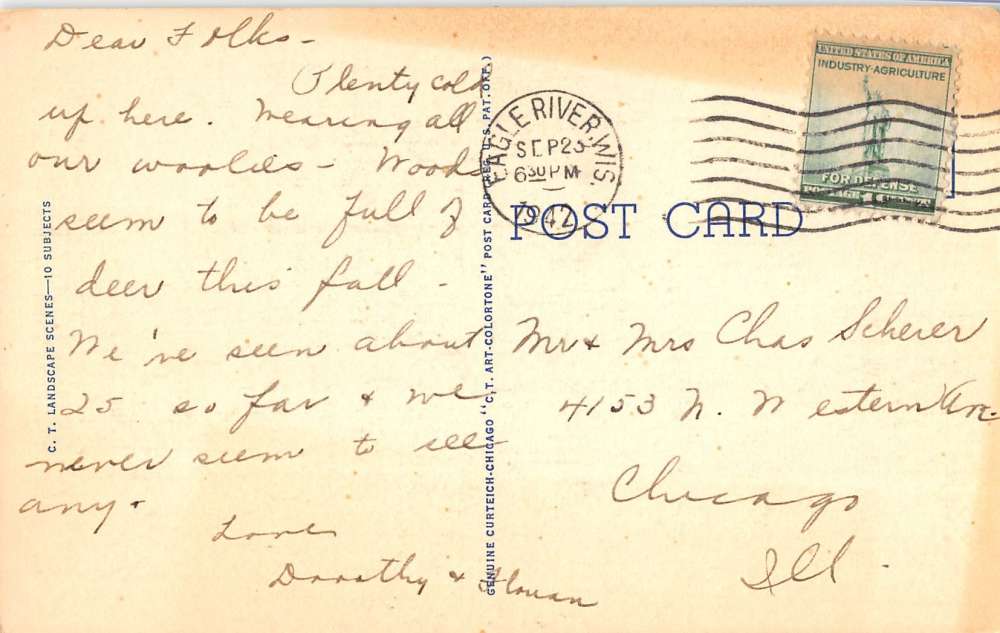 Dear Folks -
Plenty cold
up here. Wearing all
our woolies - Woods
seem to be full of
deer this fall -
We've seen about
25 so far & we
never seem to see
any.
Love
Dorothy &
C. T. LANDSCAPE SCENES—10 SUBJECTS
GENUINE CURTEICH-CHICAGO "C.T. ART-COLORTONE" POST CARD (REG. U.S. PAT. OFF.)
EAGLE RIVER, WIS.
SEP 23
6 30 PM
1942
UNITED STATES OF AMERICA
INDUSTRY-AGRICULTURE
FOR DEFENSE
POST CARD
Mr & Mrs Chas Scherer
4153 N. Western Ave.
Chicago
Ill.